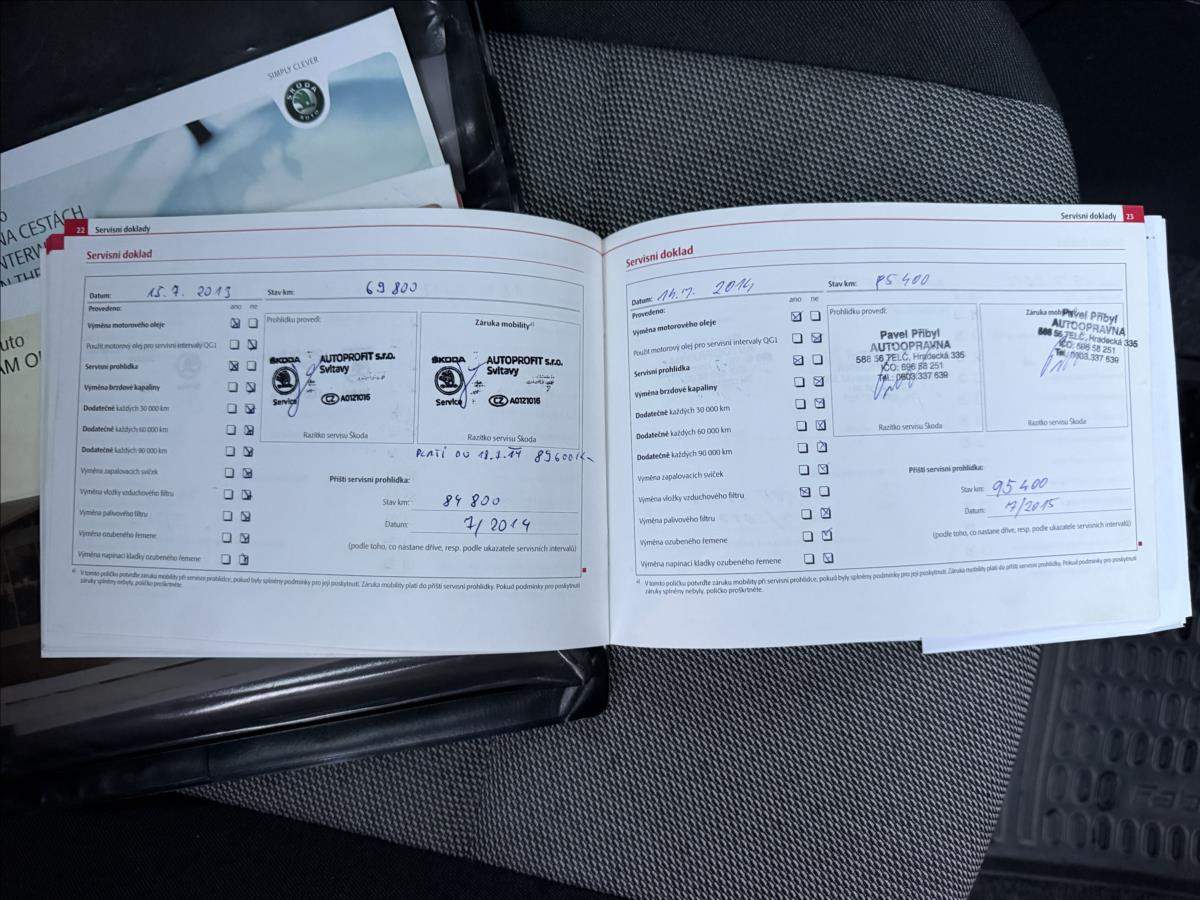 SIMPLY CLEVER
ŠKODA
AUTO
NA CESTÁCH
22 Servisní doklady
Servisní doklad
Datum: 15.7. 2013 Stav km: 69 800
Provedeno: ano ne
Výměna motorového oleje
Použit motorový olej pro servisní intervaly QG1
Servisní prohlídka
Výměna brzdové kapaliny
Dodatečně každých 30 000 km
Dodatečně každých 60 000 km
Dodatečně každých 90 000 km
Výměna zapalovacích svíček
Výměna vložky vzduchového filtru
Výměna palivového filtru
Výměna ozubeného řemene
Výměna napínací kladky ozubeného řemene
Prohlídku provedl:
ŠKODA AUTOPROFIT s.r.o.
Svitavy
Service CZ A0121016
Razítko servisu Škoda
Záruka mobility a)
ŠKODA AUTOPROFIT s.r.o.
Svitavy
Service CZ A0121016
Razítko servisu Škoda
PLATÍ DO 89600
Příští servisní prohlídka:
Stav km: 84 800
Datum: 7/2014
(podle toho, co nastane dříve, resp. podle ukazatele servisních intervalů)
a) V tomto políčku potvrďte záruku mobility při servisní prohlídce, pokud byly splněny podmínky pro její poskytnutí. Záruka mobility platí do příští servisní prohlídky. Pokud podmínky pro poskytnutí
záruky splněny nebyly, políčko proškrtněte.
Servisní doklady 23
Servisní doklad
Datum: 2014 Stav km: 85 400
Provedeno: ano ne
Výměna motorového oleje
Použit motorový olej pro servisní intervaly QG1
Servisní prohlídka
Výměna brzdové kapaliny
Dodatečně každých 30 000 km
Dodatečně každých 60 000 km
Dodatečně každých 90 000 km
Výměna zapalovacích svíček
Výměna vložky vzduchového filtru
Výměna palivového filtru
Výměna ozubeného řemene
Výměna napínací kladky ozubeného řemene
Prohlídku provedl:
Pavel Přibyl
AUTOOPRAVNA
588 56 TELČ, Hradecká 335
IČO: 696 58 251
Tel.: 0603.337 639
Razítko servisu Škoda
Pavel Přibyl
AUTOOPRAVNA
588 56 TELČ, Hradecká 335
IČO: 696 58 251
Tel.: 0603.337 639
Razítko servisu Škoda
Příští servisní prohlídka:
Stav km: 95 400
Datum: 7/2015
(podle toho, co nastane dříve, resp. podle ukazatele servisních intervalů)
a) V tomto políčku potvrďte záruku mobility při servisní prohlídce, pokud byly splněny podmínky pro její poskytnutí. Záruka mobility platí do příští servisní prohlídky. Pokud podmínky pro poskytnutí
záruky splněny nebyly, políčko proškrtněte.